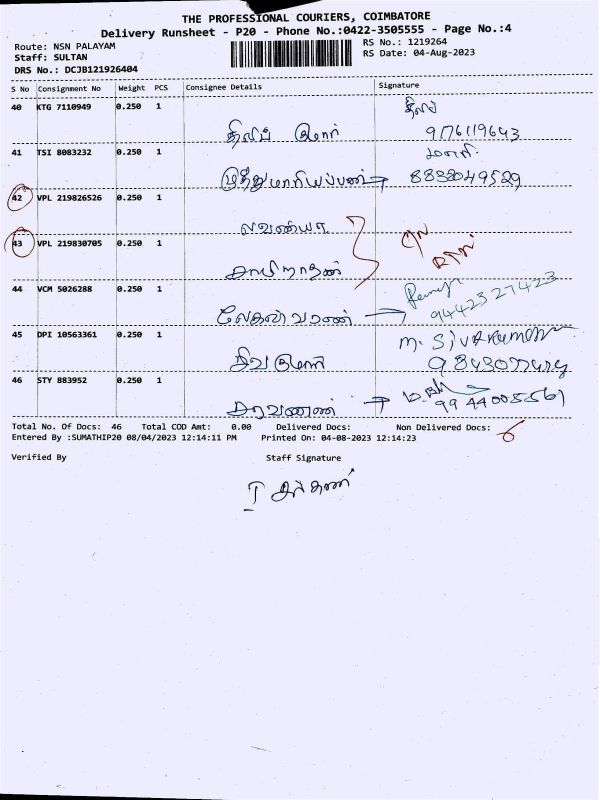 THE PROFESSIONAL COURIERS, COIMBATORE
Delivery Runsheet - P20 - Phone No.:0422-3505555 - Page No.:4
Route: NSN PALAYAM
Staff: SULTAN
DRS No.: DCJB121926404
RS No.: 1219264
RS Date: 04-Aug-2023
S No Consignment No Weight PCS Consignee Details Signature
40 KTG 7110949 0.250 1
திலிப் குமார் 9176119643
41 TSI 8083232 0.250 1
முத்துமாரியப்பன்
42 VPL 219826526 0.250 1
லவண்யா
43 VPL 219830705 0.250 1
சாயிநாதன்
44 VCM 5026288 0.250 1
9442327423
45 DPI 10563361 0.250 1 M. SIVAKUMAR
சிவகுமார்
46 STY 883952 0.250 1
சரவணன்
Total No. Of Docs: 46 Total COD Amt: 0.00 Delivered Docs: Non Delivered Docs:
Entered By :SUMATHIP20 08/04/2023 12:14:11 PM Printed On: 04-08-2023 12:14:23
Verified By Staff Signature